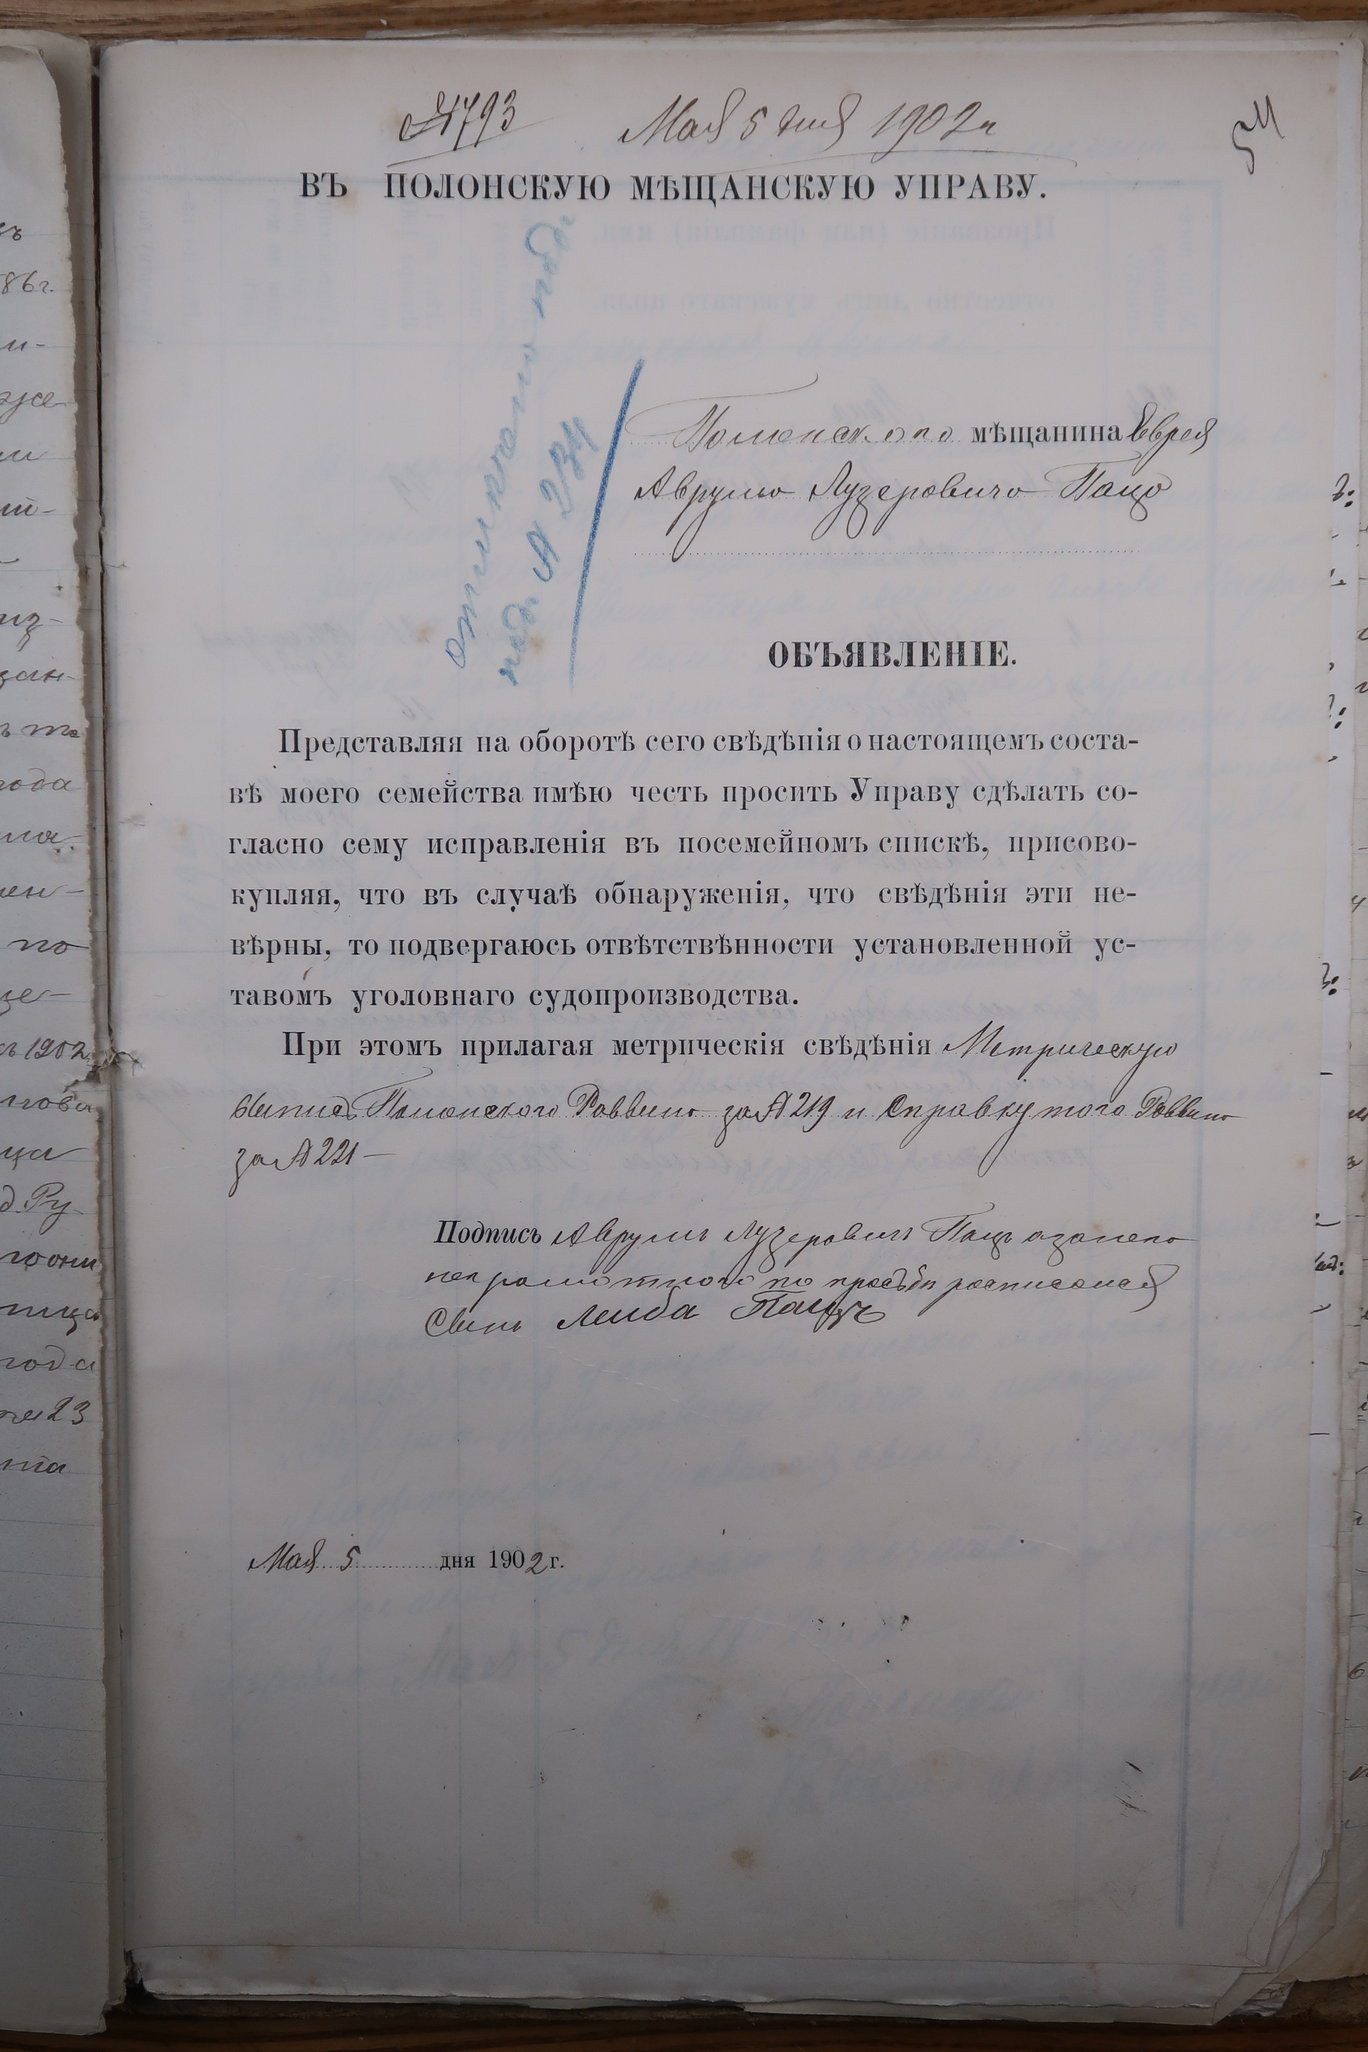 № 793 Мая 5 дня 1902 г
54
ВЪ ПОЛОНСКУЮ МѢЩАНСКУЮ УПРАВУ.
Полонскаго мѣщанина Еврея
Аврума Лузеровича Паца
№ 234
ОБЪЯВЛЕНІЕ.
Представляя на оборотѣ сего свѣдѣнія о настоящемъ соста-
вѣ моего семейства имѣю честь просить Управу сдѣлать со-
гласно сему исправленія въ посемейномъ спискѣ, присово-
купляя, что въ случаѣ обнаруженія, что свѣдѣнія эти не-
вѣрны, то подвергаюсь отвѣтствѣнности установленной ус-
тавомъ уголовнаго судопроизводства.
При этомъ прилагая метрическія свѣдѣнія Метрическую
выпись Полонского Раввина за № 219 и справку того Раввина
за № 221 —
Подпись Аврумъ Лузеровичъ Пацъ а за него
неграмотного по просьбѣ росписался
Сынъ Лейба Пацъ
Мая 5 дня 1902 г.
86 г.
1902
года
по
23